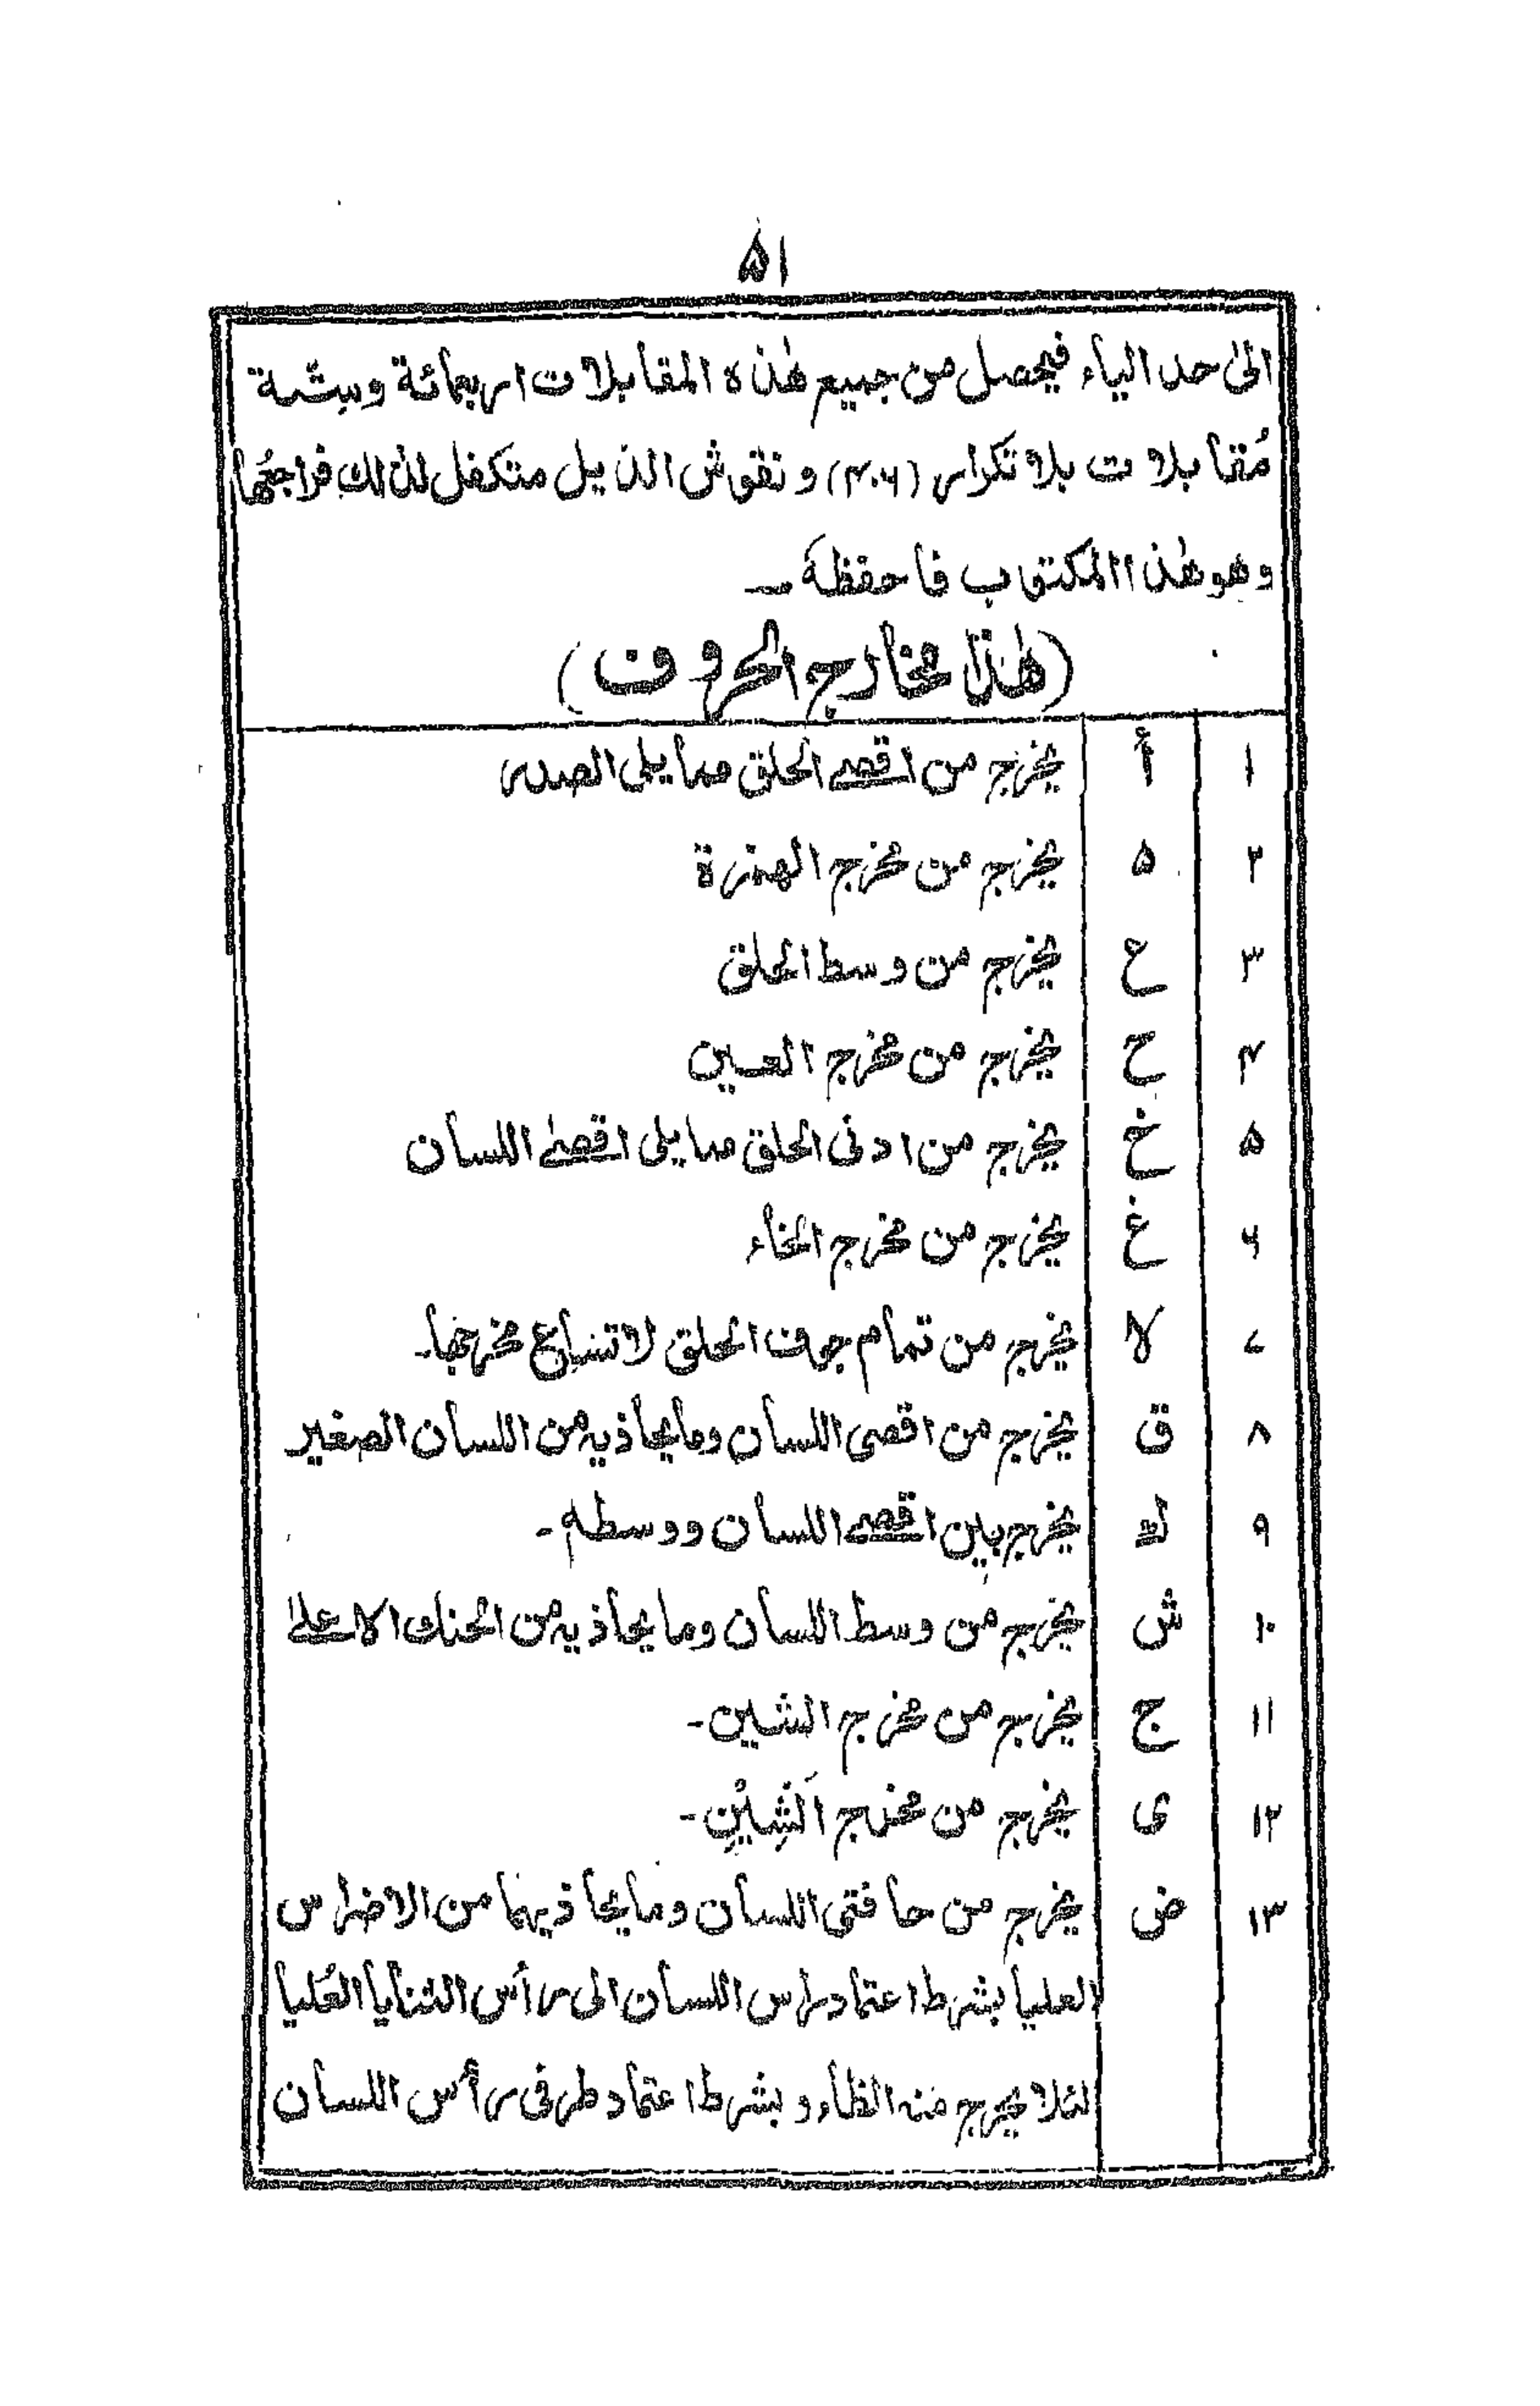 ۵۱
الیٰ حد الیاء فیحصل من جمیع هٰذہ المقابلات اربعمائة وستّة
مُقابلات بلا تکرار (۴۰۶) و نقوش الذیل متکفل لذٰلك فراجعُها
وهو هٰذا المکتوب فاحفظهٗ ۔
(هٰذا مخارج الحروف)
۱ أ یخرج من اقصی الحلق مما یلی الصدر
۲ ہ یخرج من مخرج الهمزة
۳ ع یخرج من وسط الحلق
۴ ح یخرج من مخرج العین
۵ خ یخرج من ادنی الحلق مما یلی اقصیٰ اللسان
۶ غ یخرج من مخرج الخاء
۷ لا یخرج من تمام جوف الحلق لا تساع مخرجها۔
۸ ق یخرج من اقصی اللسان وما یحاذیه من اللسان الصغیر
۹ ك یخرج بین اقصی اللسان ووسطه۔
۱۰ ش یخرج من وسط اللسان وما یحاذیه من الحنك الاعلیٰ
۱۱ ج یخرج من مخرج الشین۔
۱۲ ی یخرج من مخرج اَلشِیْنِ۔
۱۳ ض یخرج من حافتی اللسان وما یحاذیهما من الاضراس
العلیا بشرط اعتماد راس اللسان الی رأس الثنایا العُلیا
لئلا یخرج منه الظاء و بشرط اعتماد طرفی رأس اللسان